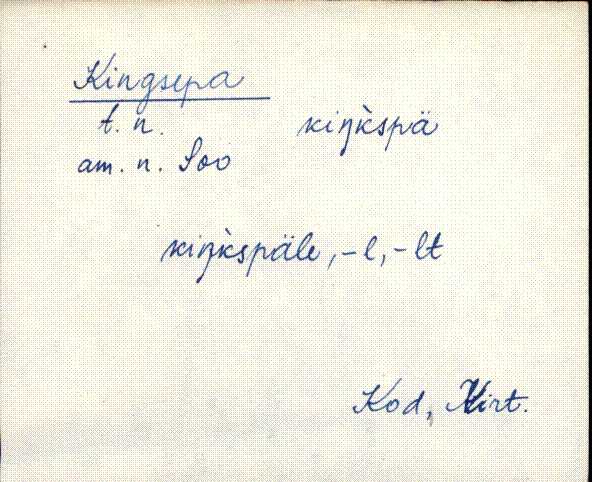 Kingsepa
t. n. kiŋ̀kspä
am. n. Soo
kiŋ̀kspäle, -l, -lt
Kod, Virt.